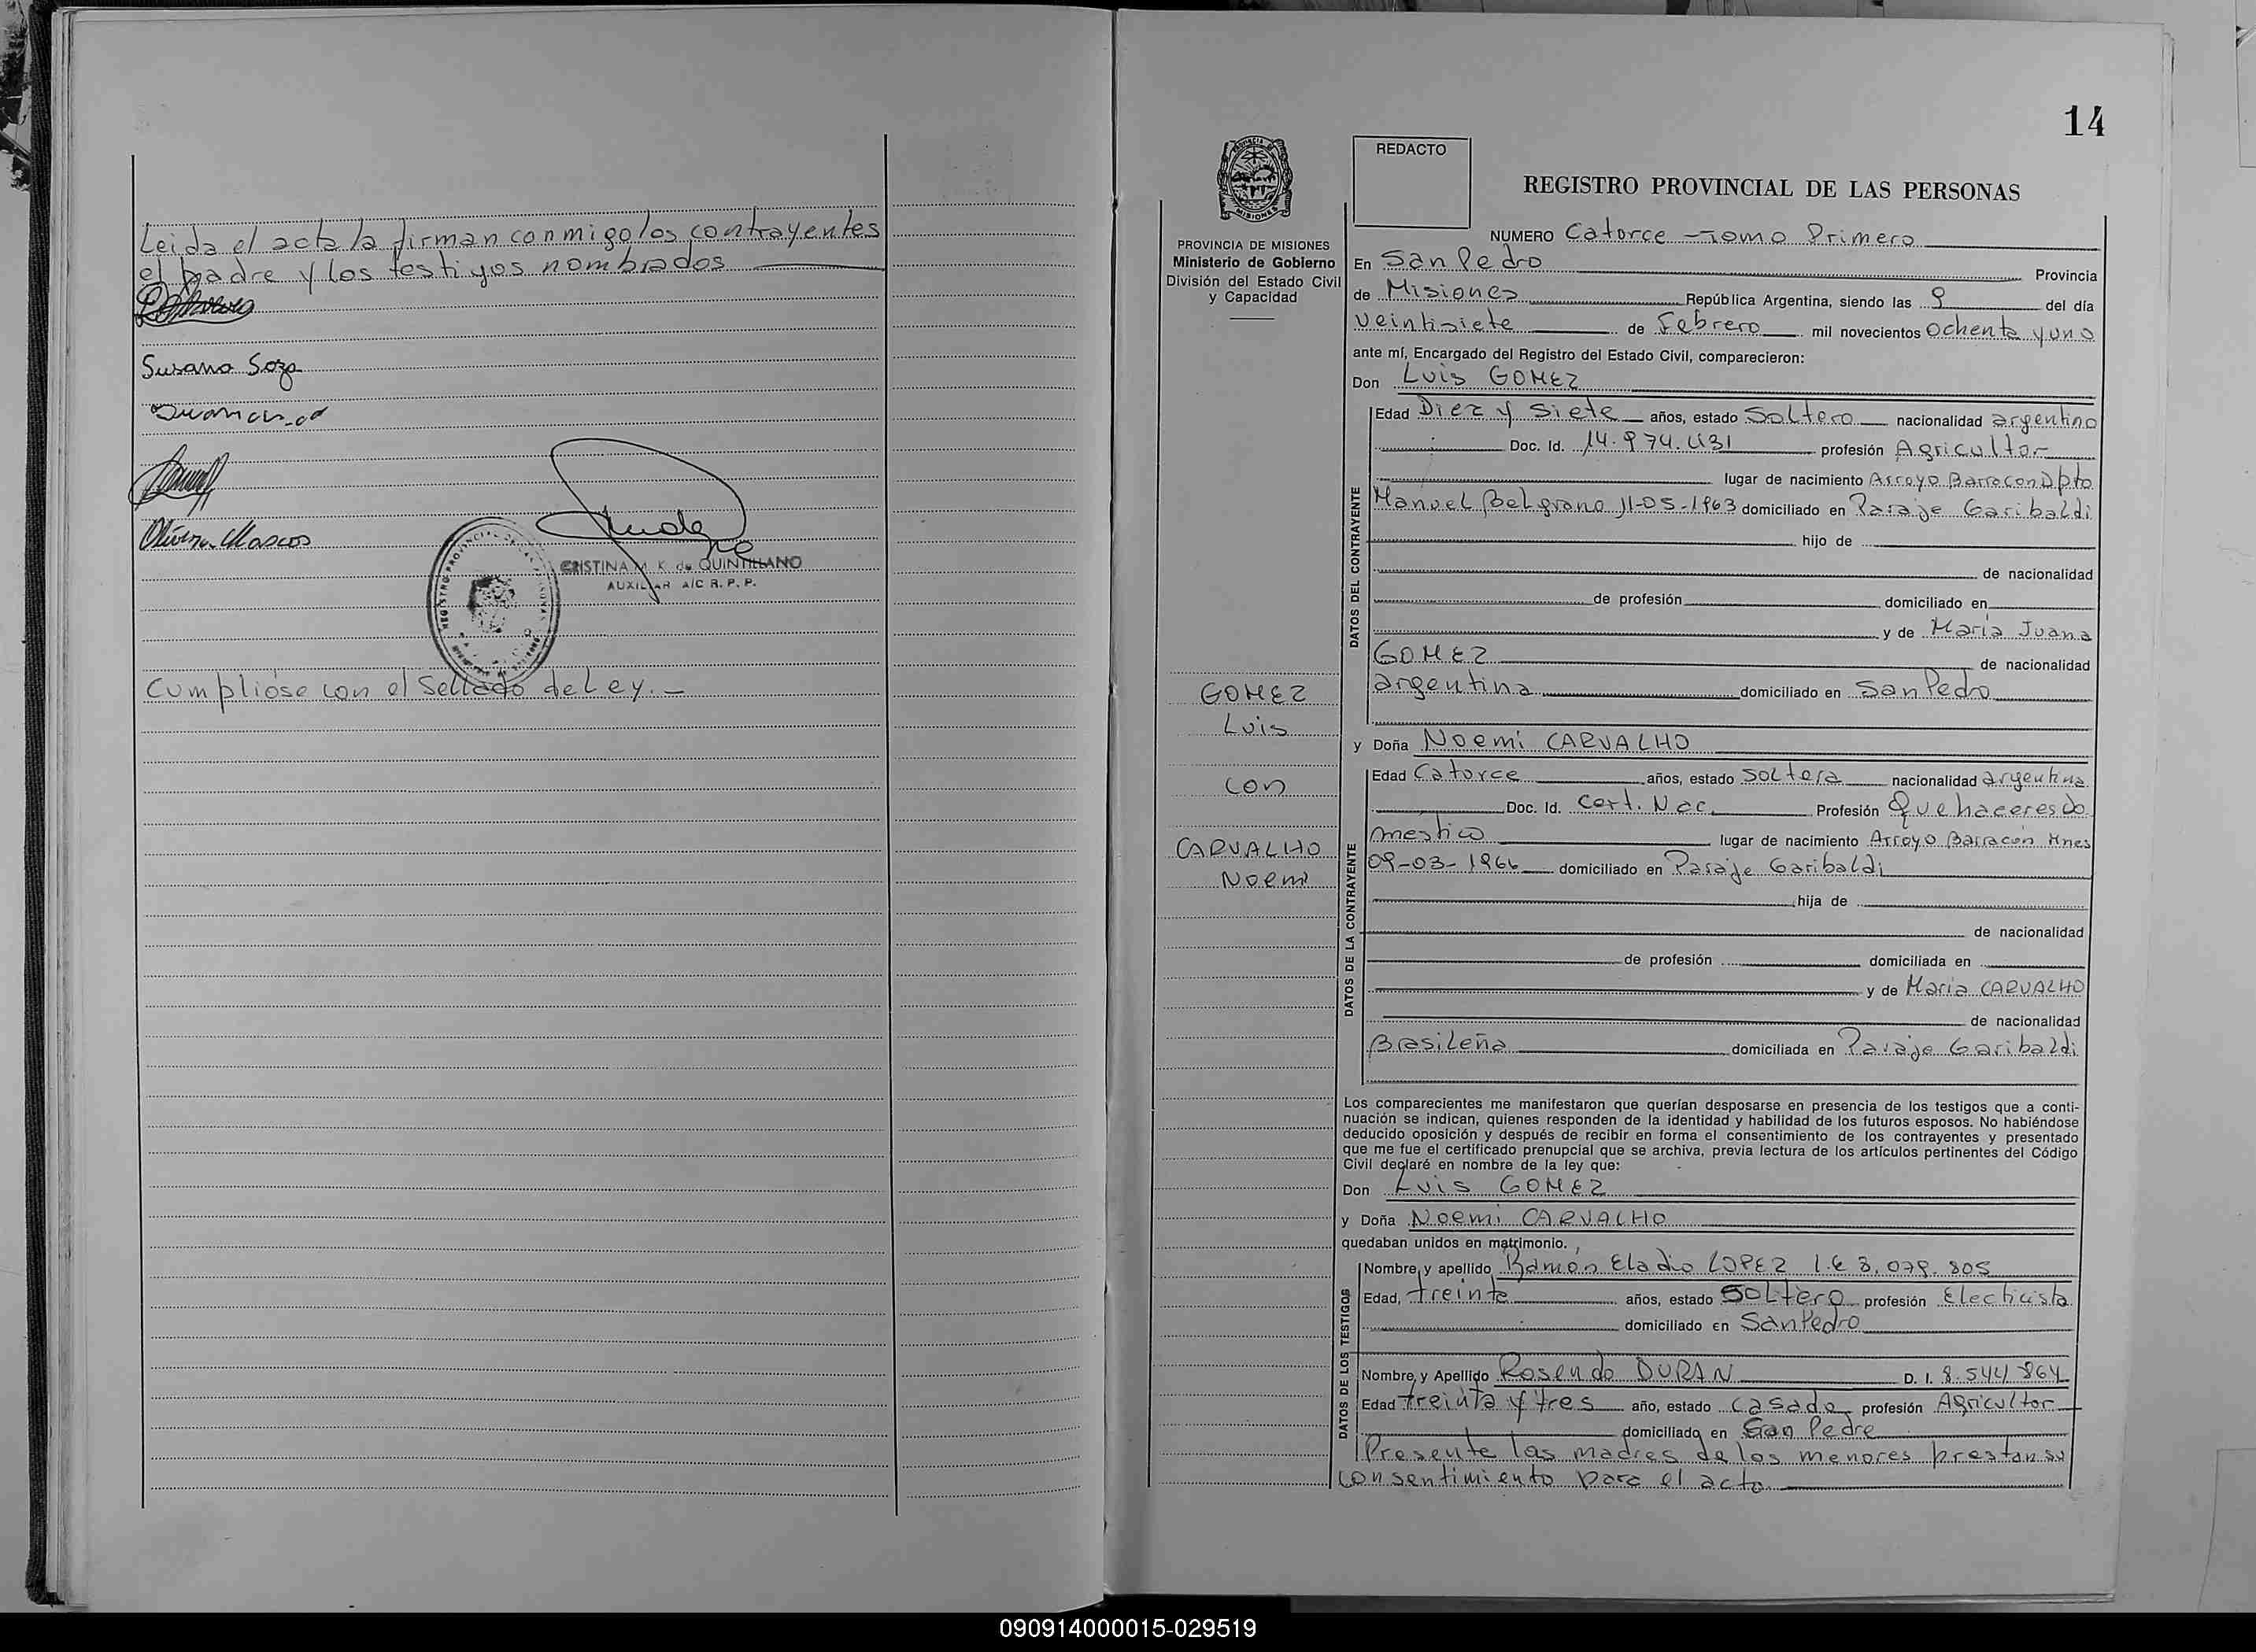 Leida el acta la firman conmigo los contrayentes
el padre y los testigos nombrados
Susana Soza
CRISTINA M. K. de QUINTILLANO
AUXILIAR A/C R. P. P.
Cumpliose con el Sellado de Ley. -
14
REDACTO
REGISTRO PROVINCIAL DE LAS PERSONAS
PROVINCIA DE MISIONES
Ministerio de Gobierno
División del Estado Civil
y Capacidad
NUMERO Catorce - Tomo Primero
En San Pedro Provincia
de Misiones República Argentina, siendo las 9 del día
veintisiete de Febrero mil novecientos ochenta y uno
ante mí, Encargado del Registro del Estado Civil, comparecieron:
Don Luis GOMEZ
DATOS DEL CONTRAYENTE
Edad Diez y siete años, estado Soltero nacionalidad argentino
Doc. Id. 14.974.431 profesión Agricultor
lugar de nacimiento Arroyo Barracon Dpto
Manuel Belgrano 11-05-1963 domiciliado en Paraje Garibaldi
hijo de
de nacionalidad
de profesión domiciliado en
y de Maria Juana
GOMEZ de nacionalidad
argentina domiciliado en San Pedro
GOMEZ
Luis
con
CARVALHO
Noemi
y Doña Noemi CARVALHO
DATOS DE LA CONTRAYENTE
Edad Catorce años, estado soltera nacionalidad argentina
Doc. Id. Cert. Nac. Profesión Quehaceres do
mestico lugar de nacimiento Arroyo Barracón Mnes
09-03-1966 domiciliado en Paraje Garibaldi
hija de
de nacionalidad
de profesión domiciliada en
y de Maria CARVALHO
de nacionalidad
Brasileña domiciliada en Paraje Garibaldi
Los comparecientes me manifestaron que querían desposarse en presencia de los testigos que a conti-
nuación se indican, quienes responden de la identidad y habilidad de los futuros esposos. No habiéndose
deducido oposición y después de recibir en forma el consentimiento de los contrayentes y presentado
que me fue el certificado prenupcial que se archiva, previa lectura de los artículos pertinentes del Código
Civil declaré en nombre de la ley que:
Don Luis GOMEZ
y Doña Noemi CARVALHO
quedaban unidos en matrimonio.
DATOS DE LOS TESTIGOS
Nombre y apellido Ramón Eladio LOPEZ L.E 8.079.805
Edad, treinta años, estado soltero profesión Electricista
domiciliado en San Pedro
Nombre y Apellido Rosendo DURAN D. I. 8.544.864
Edad treinta y tres año, estado casado profesión Agricultor
domiciliado en San Pedro
Presente las madres de los menores prestan su
consentimiento para el acto
090914000015-029519